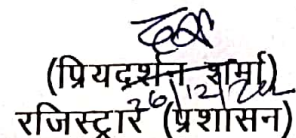 (प्रियदर्शन शर्मा)
26/12/22
रजिस्ट्रार (प्रशासन)